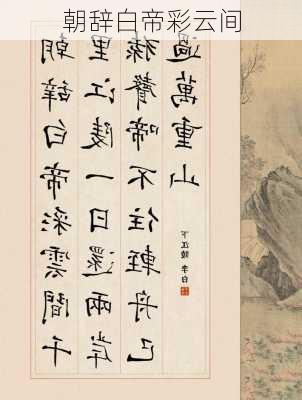 朝辞白帝彩云间
朝辭白帝彩雲間千
里江陵一日還兩岸
猿聲啼不住輕舟已
過萬重山
下江陵 李白